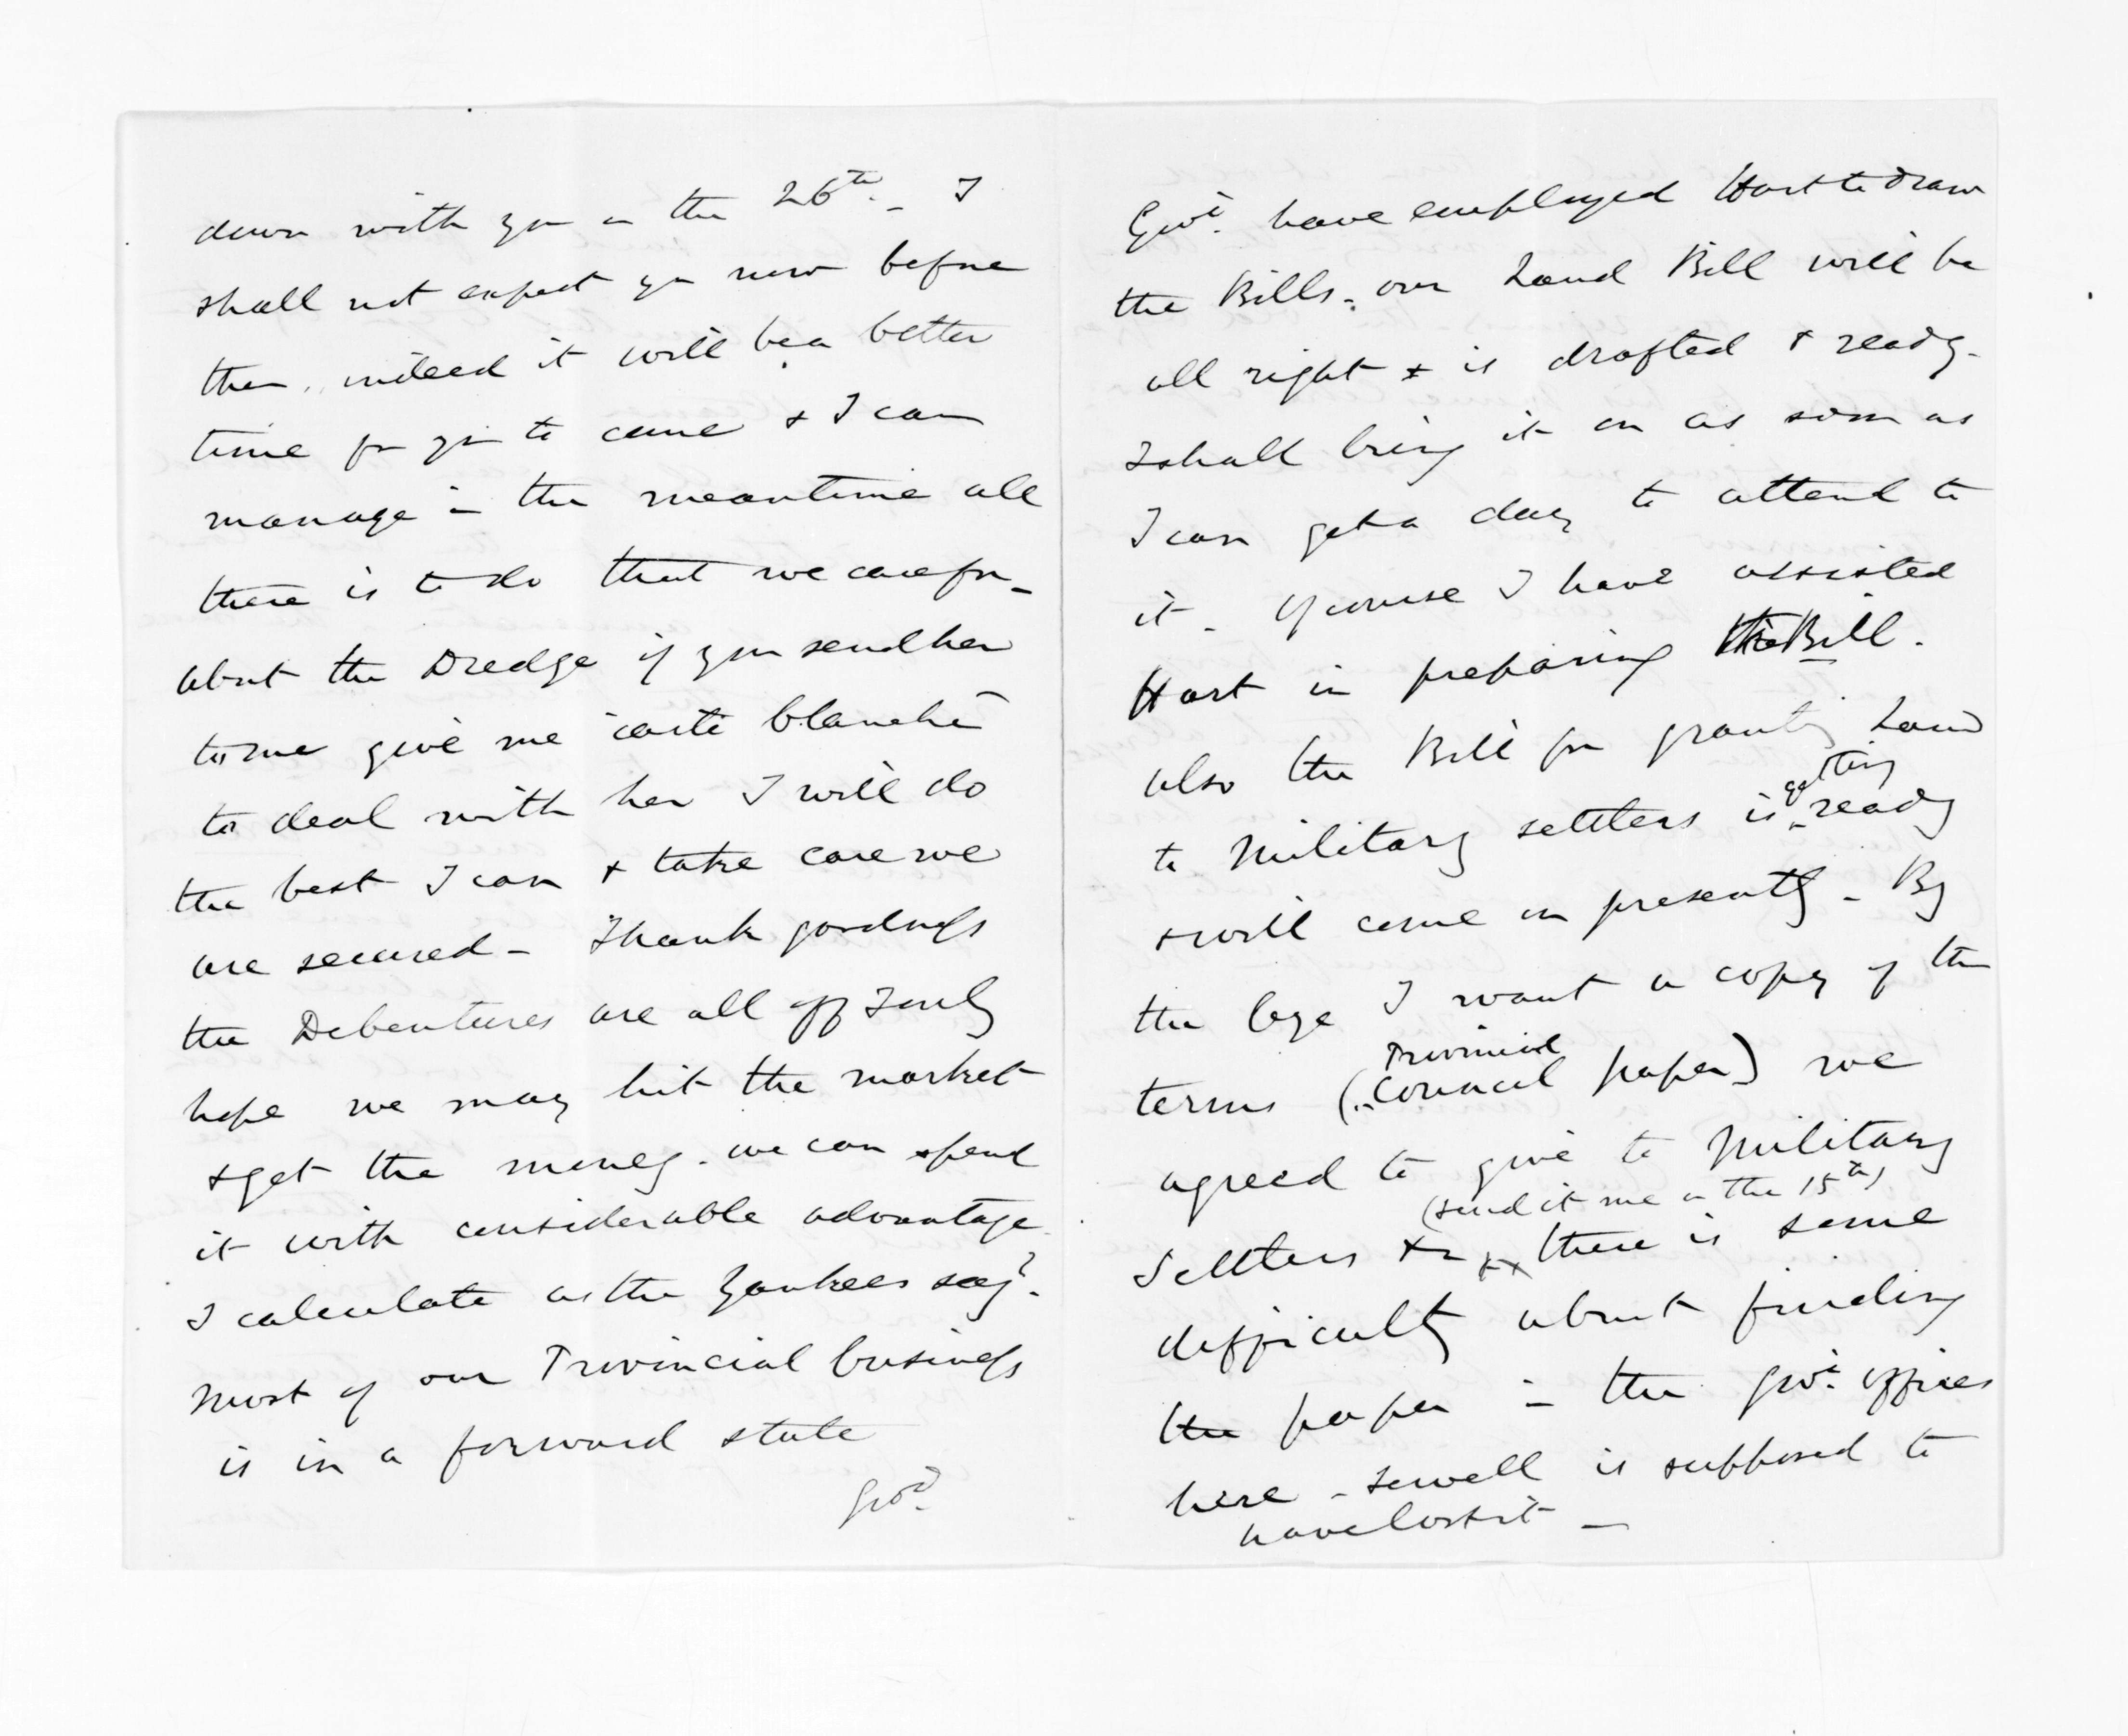 down with you on the 26th. - I
shall not expect you now before
then. indeed it will be a better
time for you to come & I can
manage in the meantime all
there is to do that we care for -
about the Dredge if you send her
to me give me "carte blanche"
to deal with her I will do
the best I can & take care we
are secured - Thank goodness
the Debentures are all off I only
hope we may hit the market
& get the money. we can spend
it with considerable advantage
I calculate as the Yankees say.
Most of our Provincial business
is in a forward state
Govt.
Govt. have employed Hart to draw
the Bills. our Land Bill will be
all right & is drafted & ready.
I shall bring it on as soon as
I can get a day to attend to
it - of course I have assisted
Hart in preparing the Bill.
also the Bill for granting Land
to Military settlers is getting ready
& will come on presently - By
the bye I want a copy of the
terms (Provincial Council paper) we
agreed to give to Military
(send it me on the 15th)
Settlers &c xx there is some
difficulty about finding
the paper in the Govt. offices
here - Sewell is supposed to
have lost it -